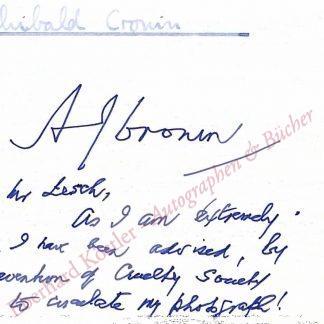 chibald Cronin
A J Cronin
Mr Lesch,
As I am extremely
I have been advised, by
evention of Cruelty Society
to circulate my photograph!
Eberhard Köstler - Autographen & Bücher